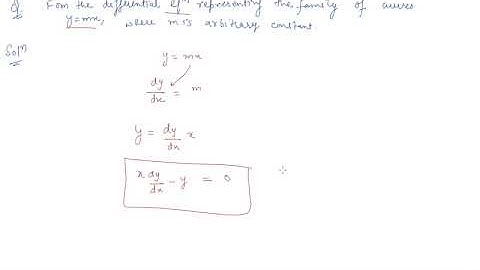 Q. Form the differential eqn representing the family of curves
y=mx, where m is arbitrary constant.
Soln
y = mx
dy/dx = m
y = dy/dx x
x dy/dx - y = 0